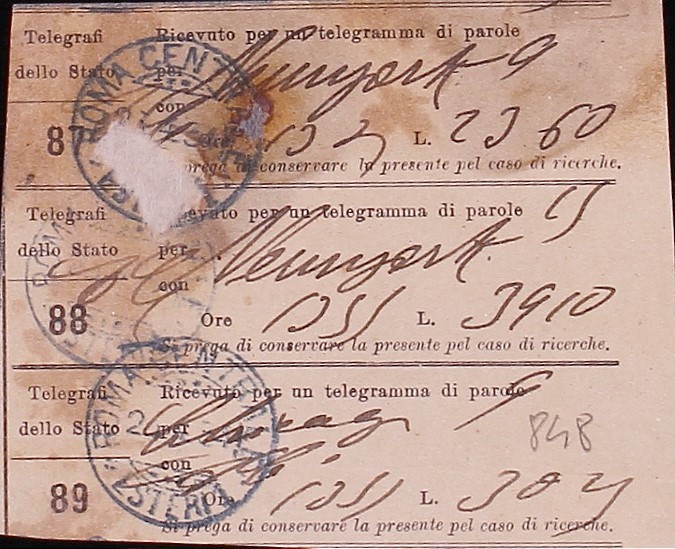 Telegrafi Ricevuto per un telegramma di parole 9
dello Stato per Newyork
con
87 L. 23 60
Si prega di conservare la presente pel caso di ricerche.
Telegrafi Ricevuto per un telegramma di parole 15
dello Stato per Newyork
con
88 Ore 1355 L. 3910
Si prega di conservare la presente pel caso di ricerche.
Telegrafi Ricevuto per un telegramma di parole 9
dello Stato per Chicago
con 848
89 Ore 1355 L.
Si prega di conservare la presente pel caso di ricerche.
ROMA CENTRALE
ROMA CENTRALE
ESTERI